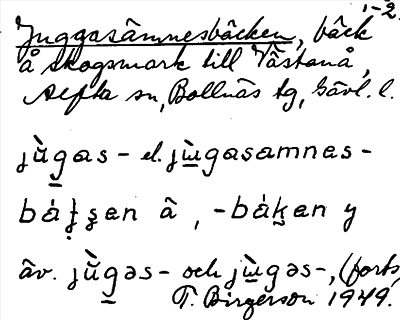 1-2.
Juggasämnesbäcken, bäck
å skogsmark till Västanå,
Alfta sn, Bollnäs tg, Gävl. l.
jù̱gas- el. jù̱gasamnas-
bát̩ʂen â, -báḵen y
äv. jù̱gəs- och jù̱gəs-, (forts,
T. Birgerson 1949.